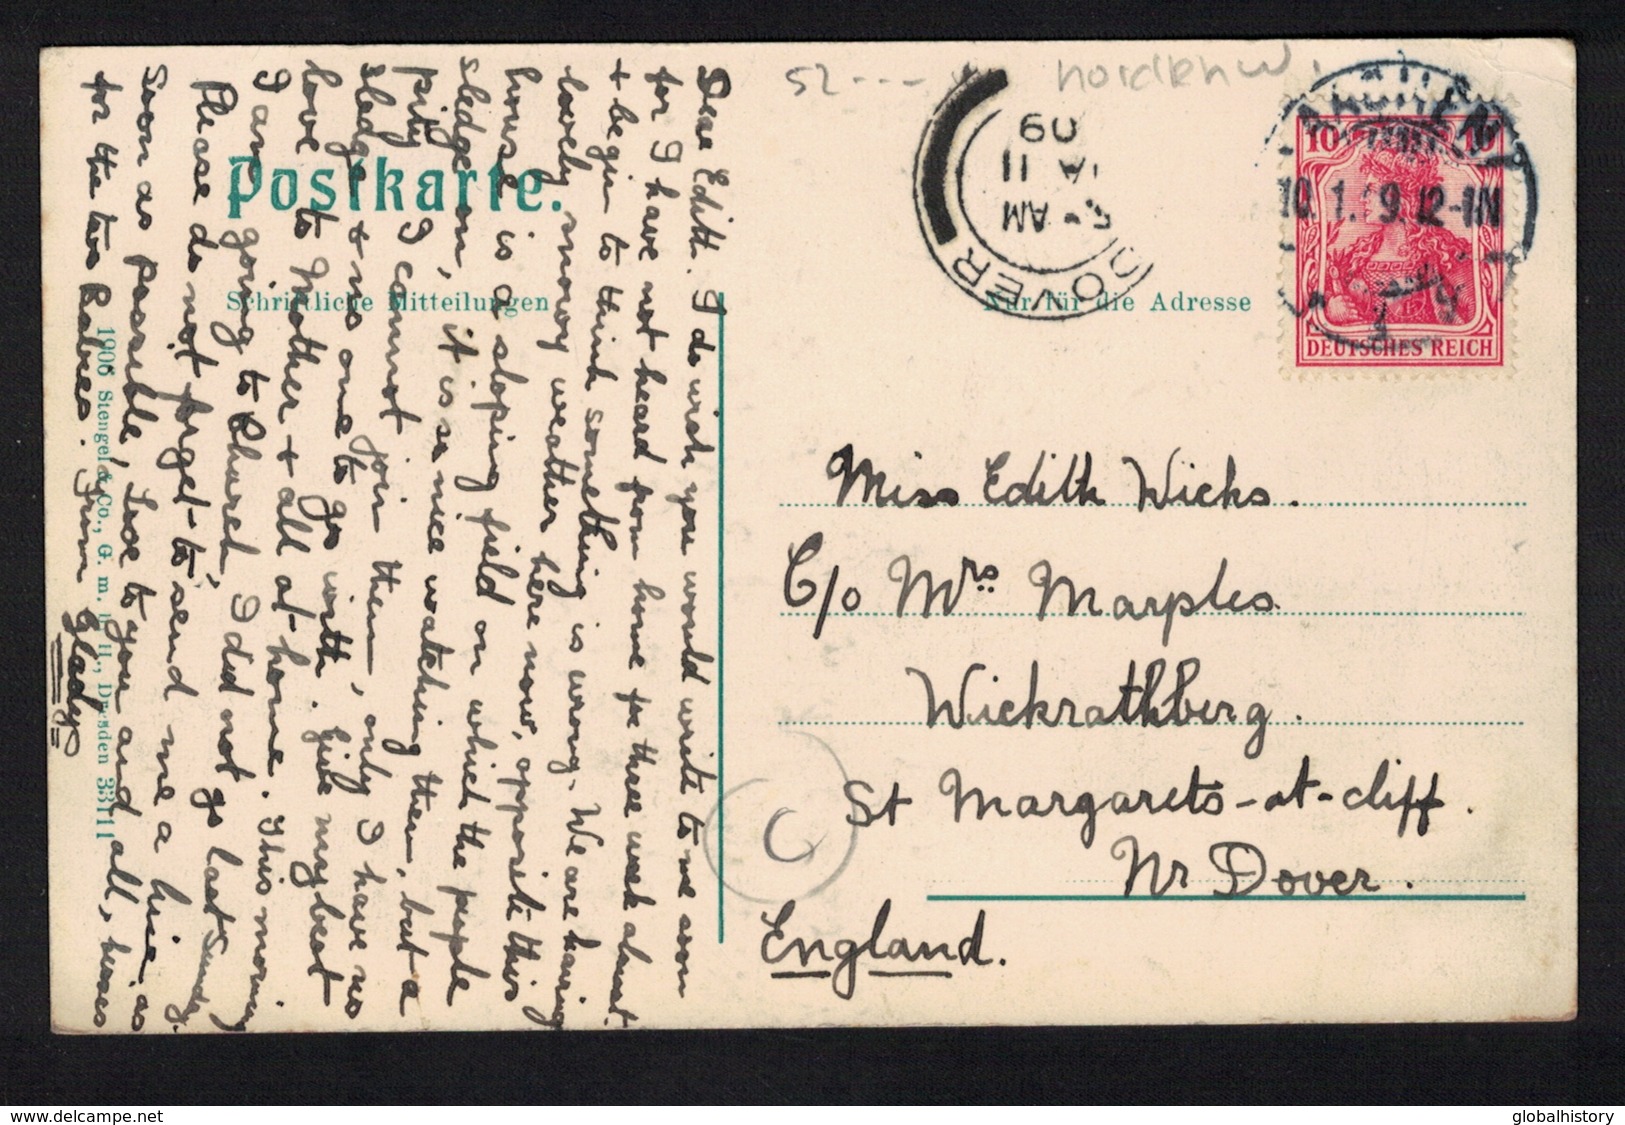 52
Postkarte.
Schriftliche Mitteilungen
Nur für die Adresse
DOVER
AM
JA 11
09
AACHEN
10. 1. 09. 12-1N
10 10
DEUTSCHES REICH
Dear Edith. I do wish you would write to me soon
for I have not heard from home for three week almost
& begin to think something is wrong. We are having
lovely snowy weather here now, opposite this
house is a sloping field on which the people
sledge on, it is so nice watching them, but a
pity I cannot join them, only I have no
sledge & no one to go with. Give my best
love to Mother & all at home. This morning
I am going to Church, I did not go last Sunday.
Please do not forget to send me a line, as
soon as possible, Love to you and all, kisses
for the two Babies. From Gladys
1906 Stengel & Co., G. m. b. H., Dresden 33711
Miss Edith Wicks.
C/o Mrs. Marples
Wickrathberg.
St Margarets-at-cliff.
Nr Dover.
England.
globalhistory